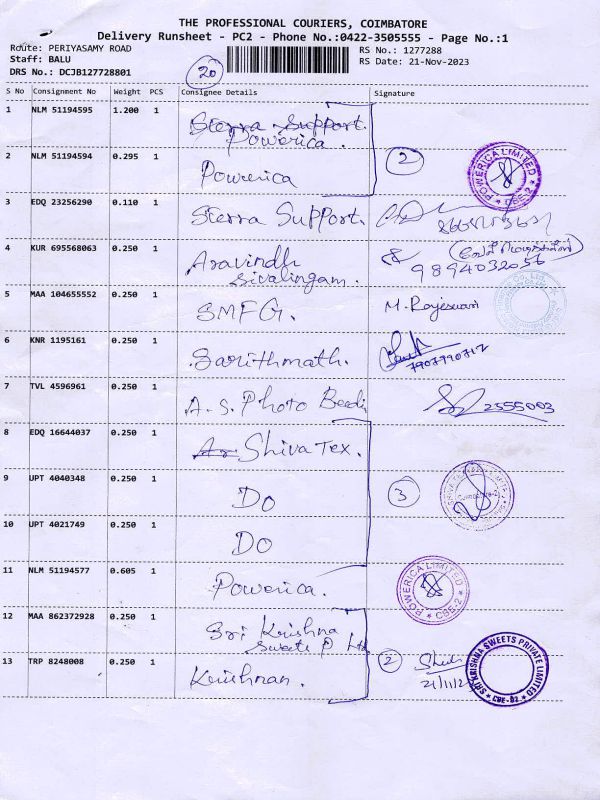 THE PROFESSIONAL COURIERS, COIMBATORE
Delivery Runsheet - PC2 - Phone No.:0422-3505555 - Page No.:1
Route: PERIYASAMY ROAD
RS No.: 1277288
Staff: BALU
RS Date: 21-Nov-2023
DRS No.: DCJB127728801
20
S No Consignment No Weight PCS Consignee Details Signature
1 NLM 51194595 1.200 1 Sterra Support.
Powerica.
2 NLM 51194594 0.295 1 Powerica 2 POWERICA LIMITED * CBE-2 *
3 EDQ 23256290 0.110 1 Sterra Support.
4 KUR 695568063 0.250 1 Aravindh
Sivalingam. 9894032056
5 MAA 104655552 0.250 1 SMFG. M. Rajeswari
6 KNR 1195161 0.250 1 Sarithmath. 7907990712
7 TVL 4596961 0.250 1 A.S. Photo 2555003
8 EDQ 16644037 0.250 1 Ar Shiva Tex.
9 UPT 4040348 0.250 1 Do 3
10 UPT 4021749 0.250 1 Do
11 NLM 51194577 0.605 1 Powerica. POWERICA LIMITED * CBE-2 *
12 MAA 862372928 0.250 1 Sri Krishna
Sweets P Ltd
13 TRP 8248008 0.250 1 Krishnan. 2 SRI KRISHNA SWEETS PRIVATE LIMITED * CBE-02 *
21/11/2